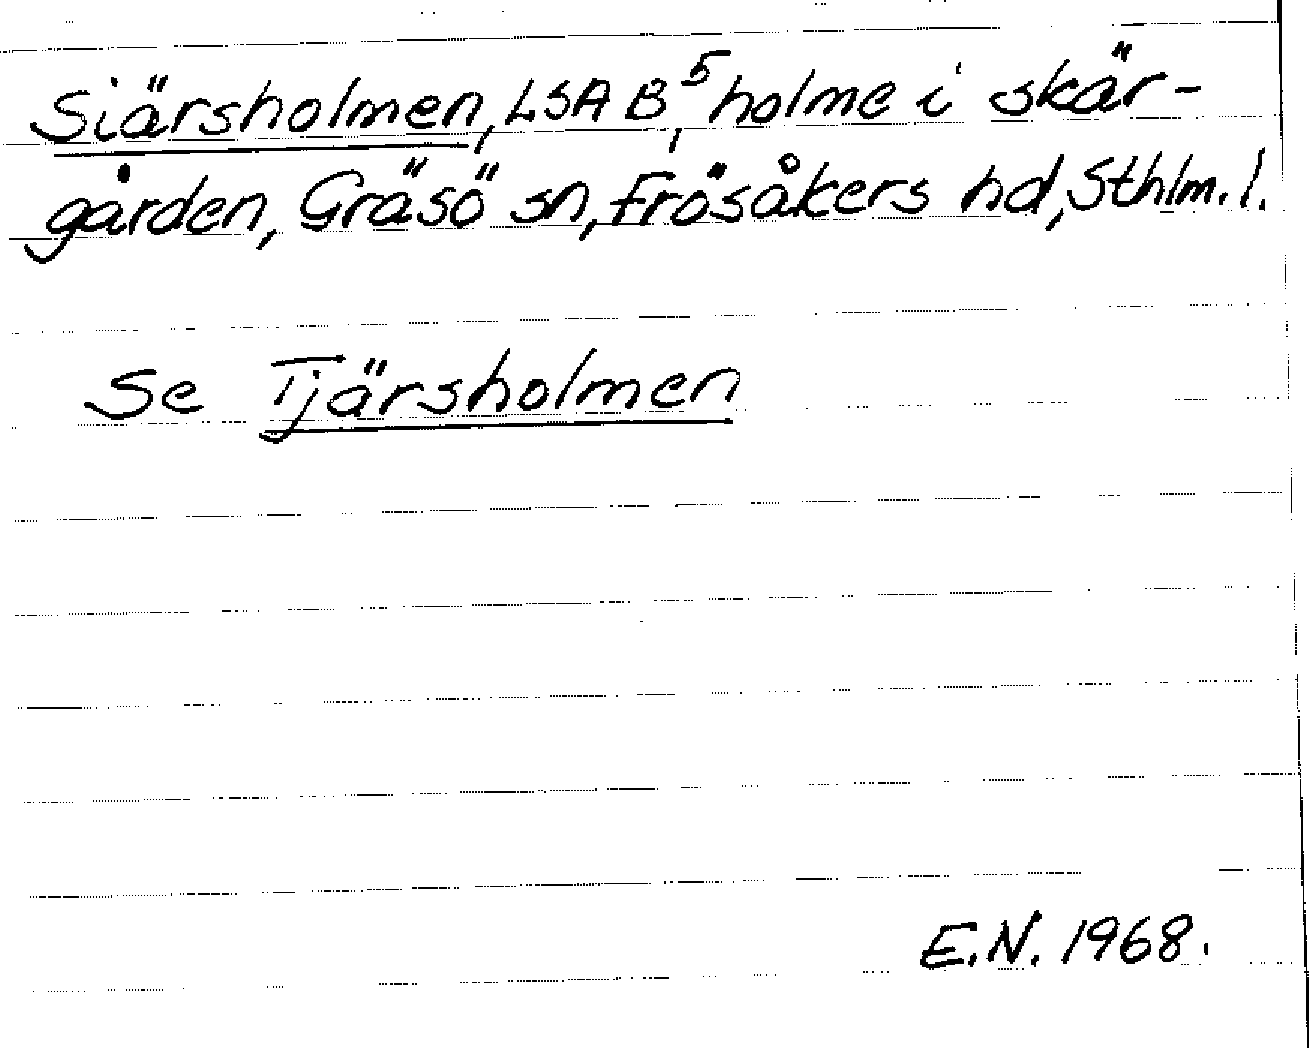 Siärsholmen, LSA B⁵, holme i skär-
gården, Gräsö sn, Frösåkers hd, Sthlm. l.
Se Tjärsholmen
E.N. 1968.